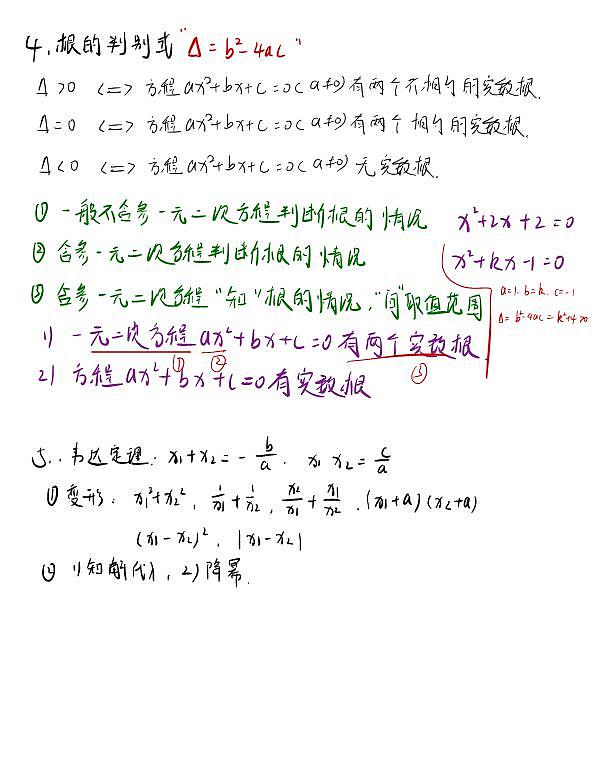 4.根的判别式"Δ=b²-4ac"
Δ>0 <=> 方程ax²+bx+c=0(a≠0)有两个不相等的实数根.
Δ=0 <=> 方程ax²+bx+c=0(a≠0)有两个相等的实数根.
Δ<0 <=> 方程ax²+bx+c=0(a≠0)无实数根.
① 一般不含参一元二次方程判断根的情况 x²+2x+2=0
② 含参一元二次方程判断根的情况 x²+kx-1=0
a=1.b=k.c=-1
③ 含参一元二次方程"知"根的情况,"问"取值范围
Δ=b²-4ac=k²+4>0
1) 一元二次方程ax²+bx+c=0有两个实数根
① ② ③
2) 方程ax²+bx+c=0有实数根
5..韦达定理: x₁+x₂=-b/a. x₁x₂=c/a
① 变形: x₁²+x₂², 1/x₁+1/x₂, x₂/x₁+x₁/x₂, (x₁+a)(x₂+a)
(x₁-x₂)², |x₁-x₂|
② 1)知解代入, 2)降幂.